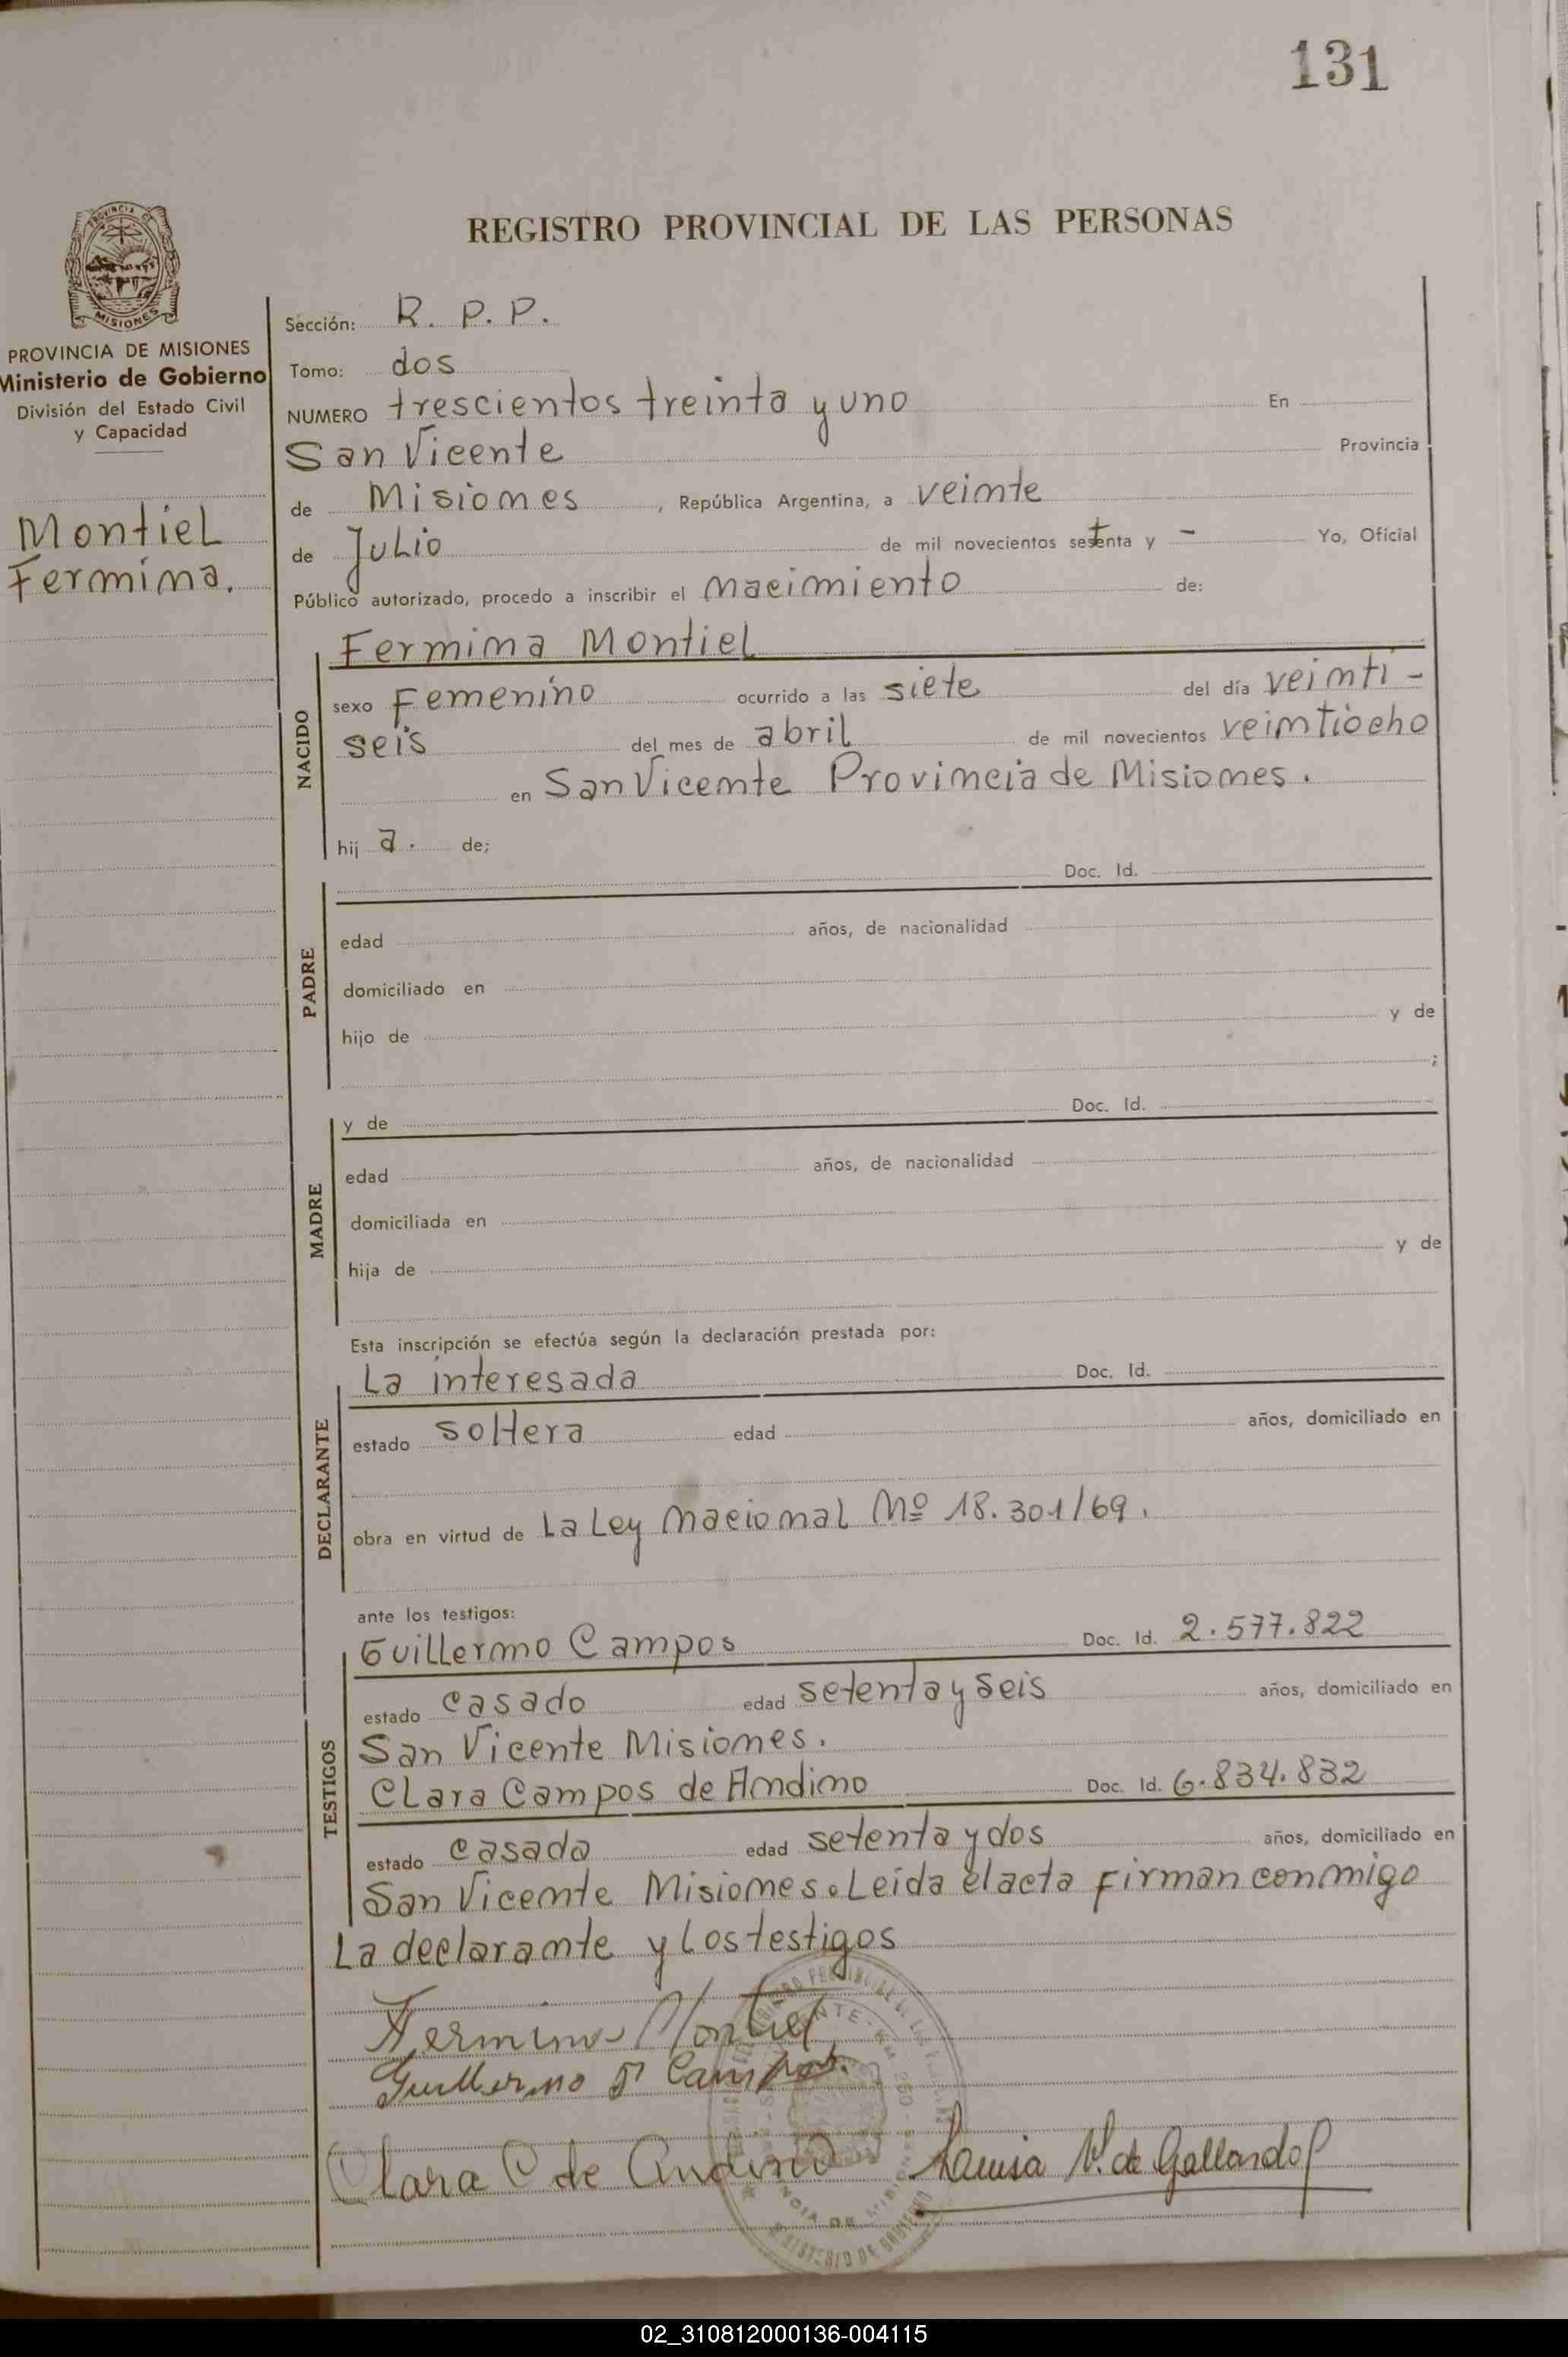 131
REGISTRO PROVINCIAL DE LAS PERSONAS
MISIONES
PROVINCIA DE MISIONES
Ministerio de Gobierno
División del Estado Civil
y Capacidad
Montiel
Fermina.
Sección: R. P. P.
Tomo: dos
NUMERO trescientos treinta y uno En
San Vicente Provincia
de Misiones, República Argentina, a veinte
de Julio de mil novecientos setenta y - Yo, Oficial
Público autorizado, procedo a inscribir el nacimiento de:
NACIDO
Fermina Montiel
sexo Femenino ocurrido a las siete del día veinti-
seis del mes de abril de mil novecientos veintiocho
en San Vicente Provincia de Misiones.
hij a. de;
PADRE
Doc. Id.
edad años, de nacionalidad
domiciliado en
hijo de y de
;
MADRE
y de Doc. Id.
edad años, de nacionalidad
domiciliada en
hija de y de
Esta inscripción se efectúa según la declaración prestada por:
DECLARANTE
La interesada Doc. Id.
estado soltera edad años, domiciliado en
obra en virtud de La Ley Nacional Nº 18.301/69.
ante los testigos:
TESTIGOS
Guillermo Campos Doc. Id. 2.577.822
estado casado edad setenta y seis años, domiciliado en
San Vicente Misiones.
Clara Campos de Andino Doc. Id. 6.834.832
estado casada edad setenta y dos años, domiciliado en
San Vicente Misiones. Leída el acta firman conmigo
La declarante y los testigos
Fermina Montiel
Guillermo Campos
Clara C de Andino
V. de Gallardo
MINISTERIO DE GOBIERNO
02_310812000136-004115